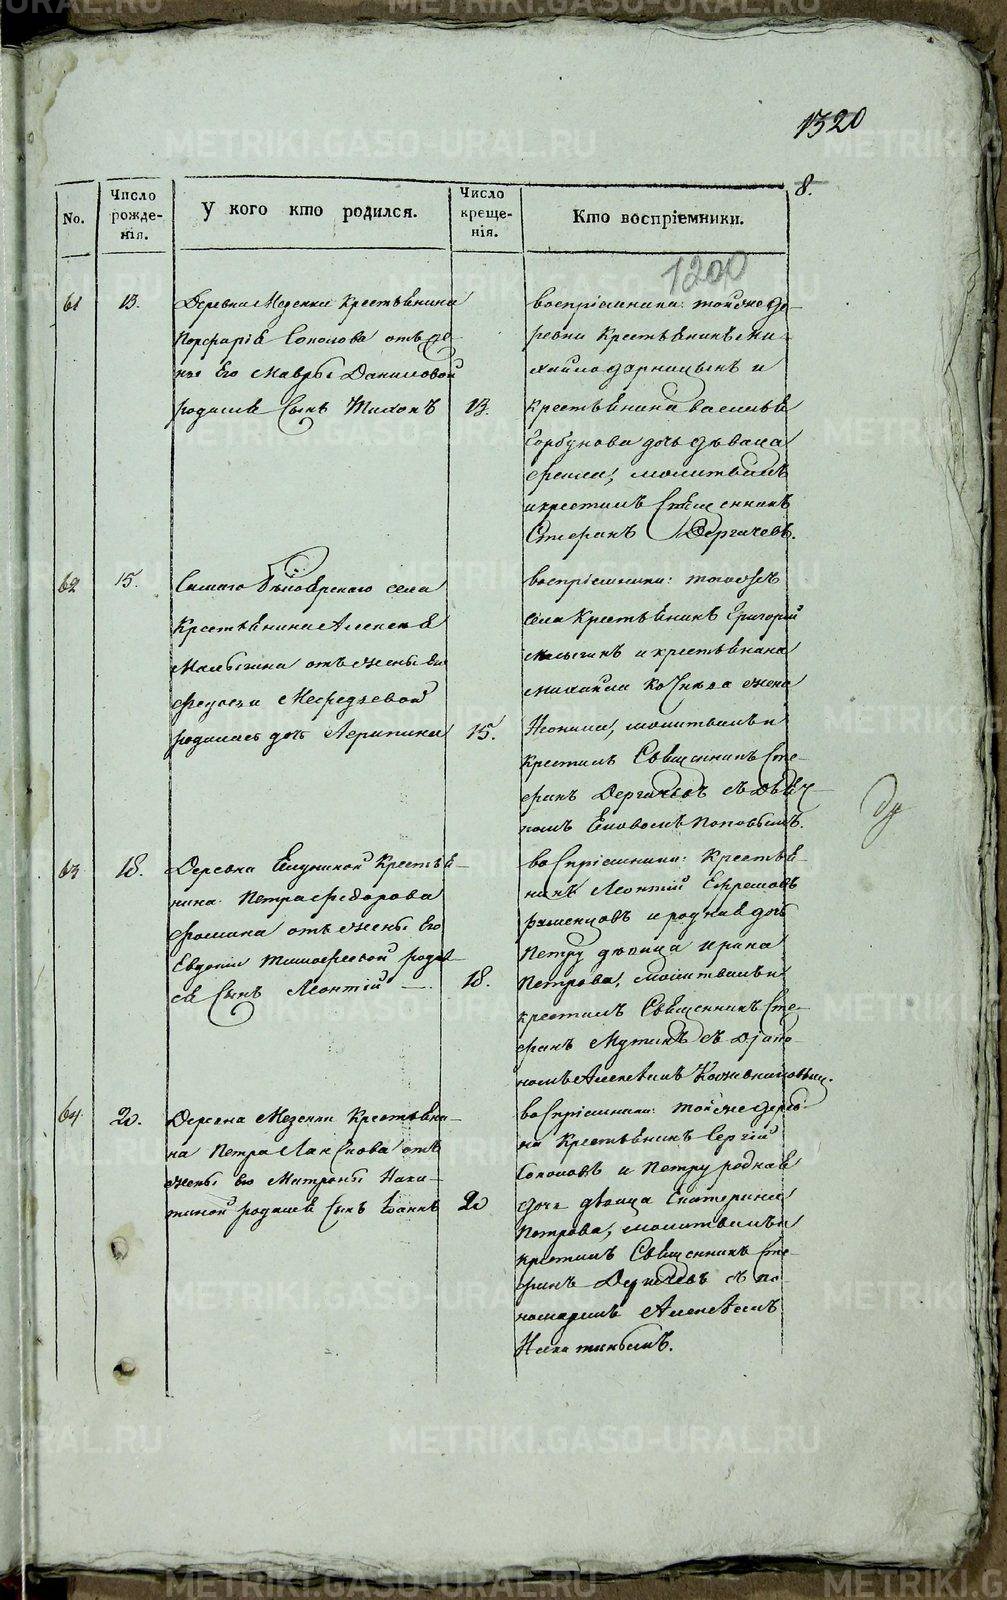 1320
8.
No.
Число рожденія.
У кого кто родился.
Число крещенія.
Кто воспріемники.
1200
61
13.
Деревни Мезенки крестьянина
Порфирія Соколова отъ же-
ны Его Мавры Даниловой
родился сынъ Тихонъ
13.
воспріемники: той же де-
ревни крестьянинъ Ми-
хайло и
крестьянина Василья
Горбунова дочь дѣвица
молитвилъ
и крестилъ Священникъ
Стефанъ Дергачевъ.
62
15.
Самаго Бѣлоярскаго села
Крестьянина Алексея
Малыгина отъ жены Его
Федосьи Мефодьевой
родилась дочь Агрипина
15.
воспріемники: тогожъ
села Крестьянинъ Григорій
Малыгинъ и крестьянина
Михайла жена
молитвилъ и
крестилъ Священникъ Сте-
фанъ Дергачевъ съ Дьяч-
комъ Поповымъ.
63
18.
Деревни Елункиной Крестья-
нина Петра Федорова
Фомина отъ жены Его
Евдокіи Тимофеевой родил-
ся Сынъ Леонтій
18.
воспріемники: Крестья-
нинъ Леонтій Ефремовъ
и родная дочь
Петру дѣвица Ирина
Петрова, молитвилъ и
крестилъ Священникъ Сте-
фанъ съ Діяко-
номъ Алексѣемъ
64
20.
Деревни Мезенки Крестьяни-
на Петра отъ
жены Его Матроны Ники-
тиной родился Сынъ Іоаннъ
20
воспріемники: той же дерев-
ни Крестьянинъ Сергій
Соколовъ и Петру родная
дочь дѣвица Екатерина
Петрова, молитвилъ и
крестилъ Священникъ Сте-
фанъ Дергачевъ съ по-
номаремъ Алексѣемъ
METRIKI.GASO-URAL.RU